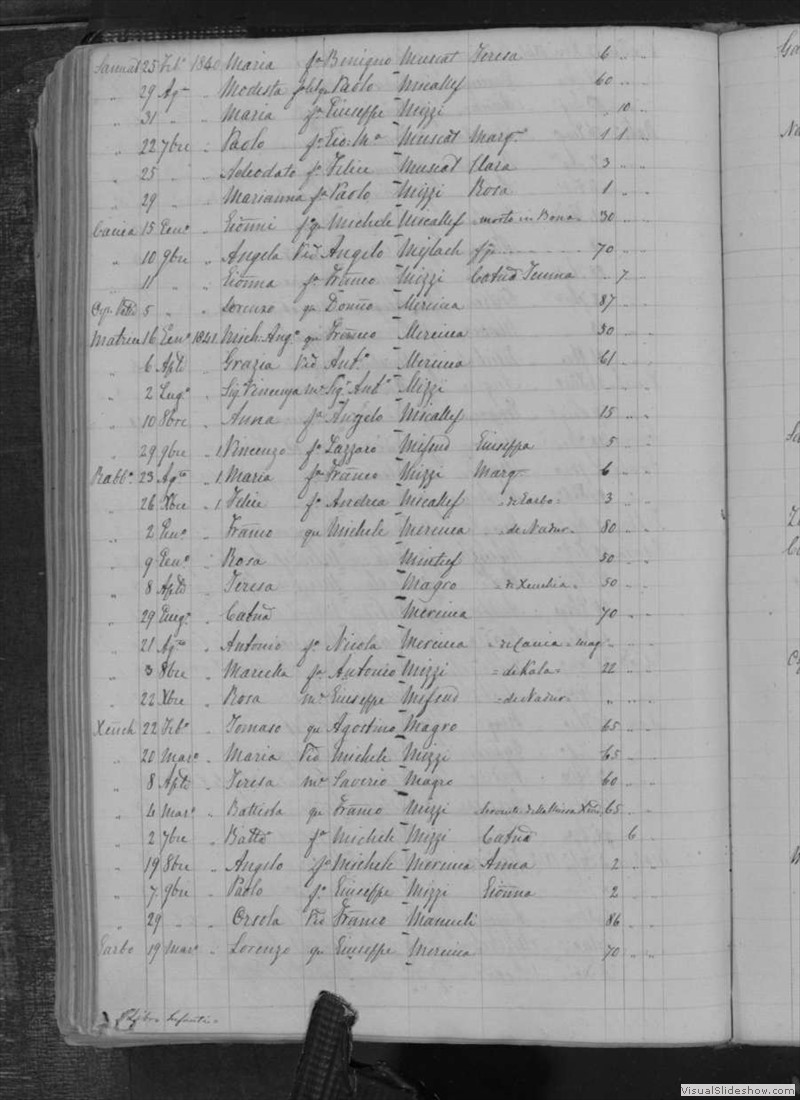 Sannat 25 Feb.º 1840 Maria fª Benigno Muscat Teresa 6 " "
" 29 Agº " Modesta Paolo Micallef 60 " "
" 31 " " Maria fª Giuseppe Mizzi " 10 "
" 22 7bre " Paolo fº Gio: Mª Muscat Margª 1 1 "
" 25 " " Adeodato fº Felice Muscat Clara 3 " "
" 29 " Marianna fª Paolo Mizzi Rosa 1 " "
Caccia 15 Genº " Gioñni Michele Micallef morto in Bona 30 " "
" 10 9bre " Angela Vid Angelo Mejlach 70 " "
" 11 " " Gioñna fª Franco Mizzi Catñd " 7 "
5 " " Lorenzo qm Mercieca 87 " "
Matrice 16 Genº 1841 Mich: Angº qm Franco Mercieca 30 " "
" 6 Aple " Grazia Vid Antº Mercieca 61 " "
" 2 Lugº " Sigª Vincenza mº Sigr Antº Mizzi " " "
" 10 8bre " Anna fª Angelo Micallef 15 " "
" 29 9bre 1 Vincenzo fº Lazzaro Mifsud Giuseppa 5 " "
Rabbº 23 Agto 1 Maria fª Franco Mizzi Margª 6 " "
" 26 Xbre 1 Felice fº Andrea Micallef di Garbo 3 " "
" 2 Genº " Franco qm Michele Mercieca di Nadur 80 " "
" 9 Genº " Rosa 50 " "
" 8 Aple " Teresa Magro di Xeuchia 50 " "
" 29 Giugº " Catñd Mercieca 70 " "
" 21 Agto " Antonio fº Nicola Mercieca di Caccia mag " "
" 3 8bre " Mariella fª Antonio Mizzi di Kala 22 " "
" 22 Xbre " Rosa mº Giuseppe Mifsud di Nadur " " "
Xeuch 22 Febº " Tomaso qm Agostino Magro 65 " "
" 20 Marº " Maria Vid Michele Mizzi 65 " "
" 8 Aple " Teresa mº Saverio Magro 60 " "
" 4 Marº " Battista qm Franco Mizzi 65 " "
" 2 7bre " Battª fº Michele Mizzi Catñd " 6 "
" 19 8bre " Angelo fº Michele Mercieca Anna 2 " "
" 7 9bre " Paolo fº Giuseppe Mizzi Gioñna 2 " "
" 29 " " Orsola Vid Franco Manueli 86 " "
Garbo 19 Marº " Lorenzo qm Giuseppe Mercieca 70 " "
Infanti
VisualSlideshow.com